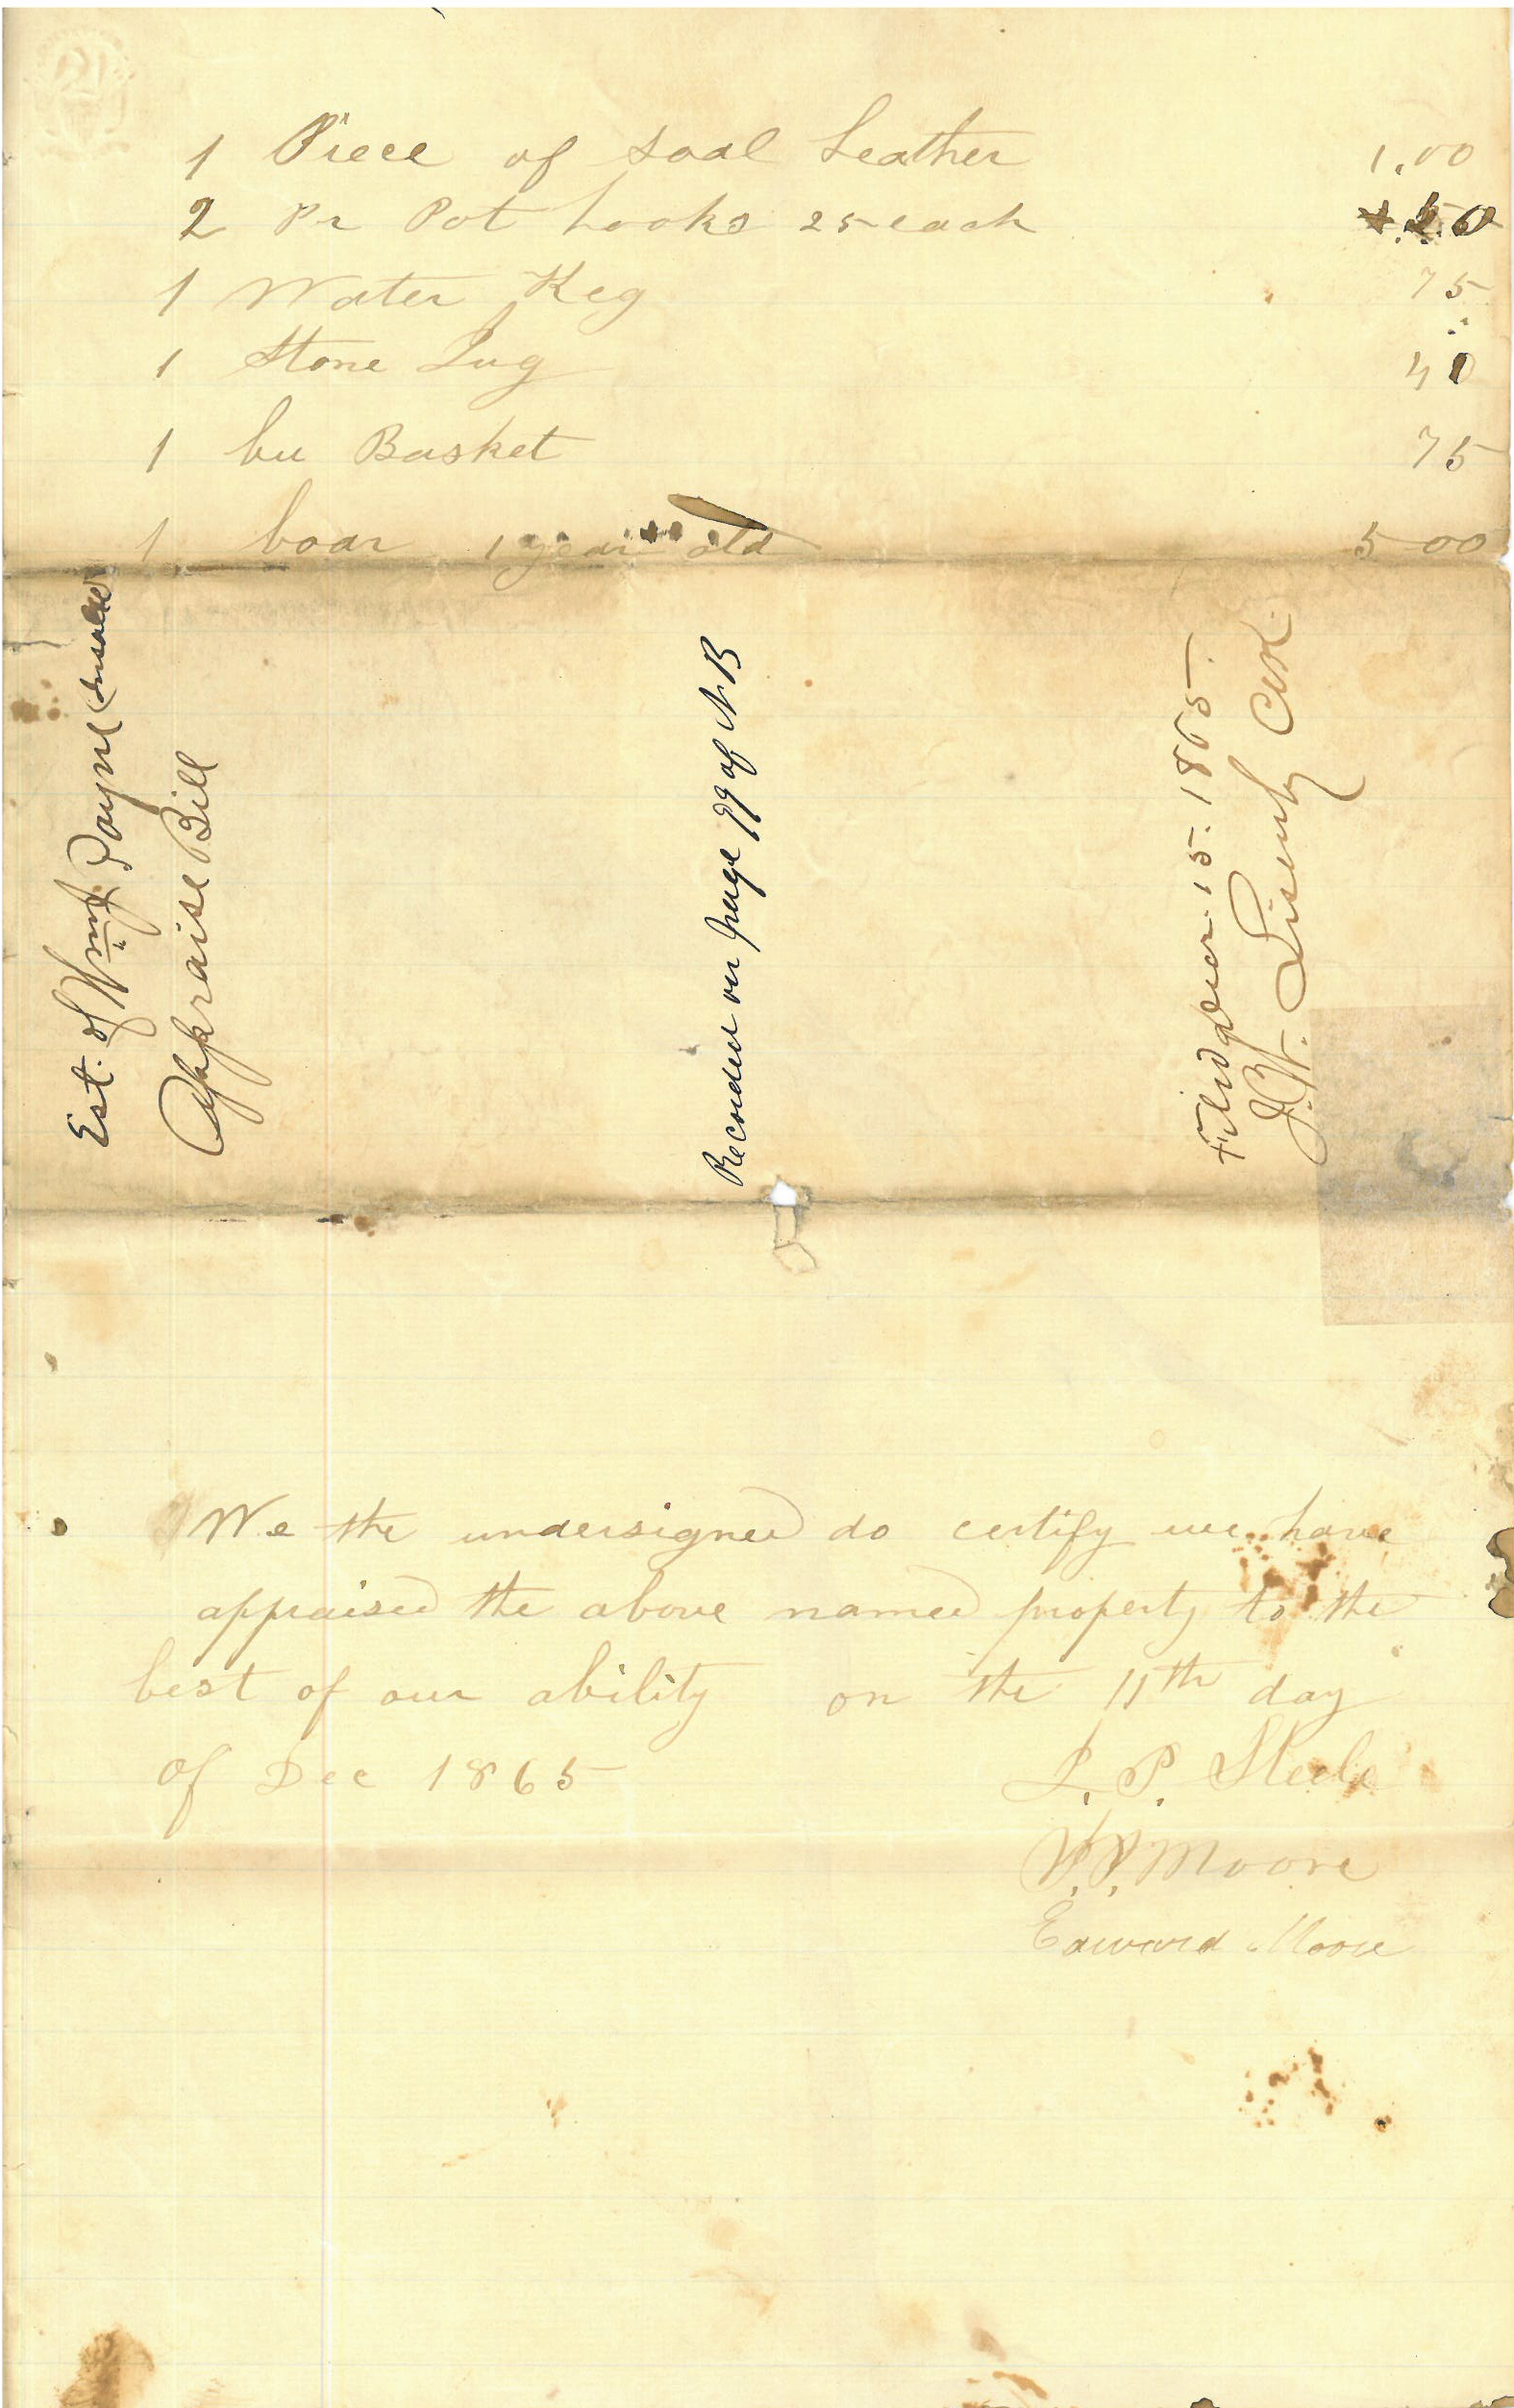 1 Piece of soal Leather 1.00
2 Pr Pot hooks 25 each .50
1 Water Keg 75
1 Stone Jug 40
1 bu Basket 75
1 boar 1 year old 5 00
Est. of Wm Payne
Appraise Bill
Recorded on page 99 of N B
Filed Decr. 15. 1865.
J. W. Lisenby Clk.
We the undersigned do certify we have
appraised the above named property to the
best of our ability on the 11th day
of Dec 1865
P. Steele
Moore
Edward Moore